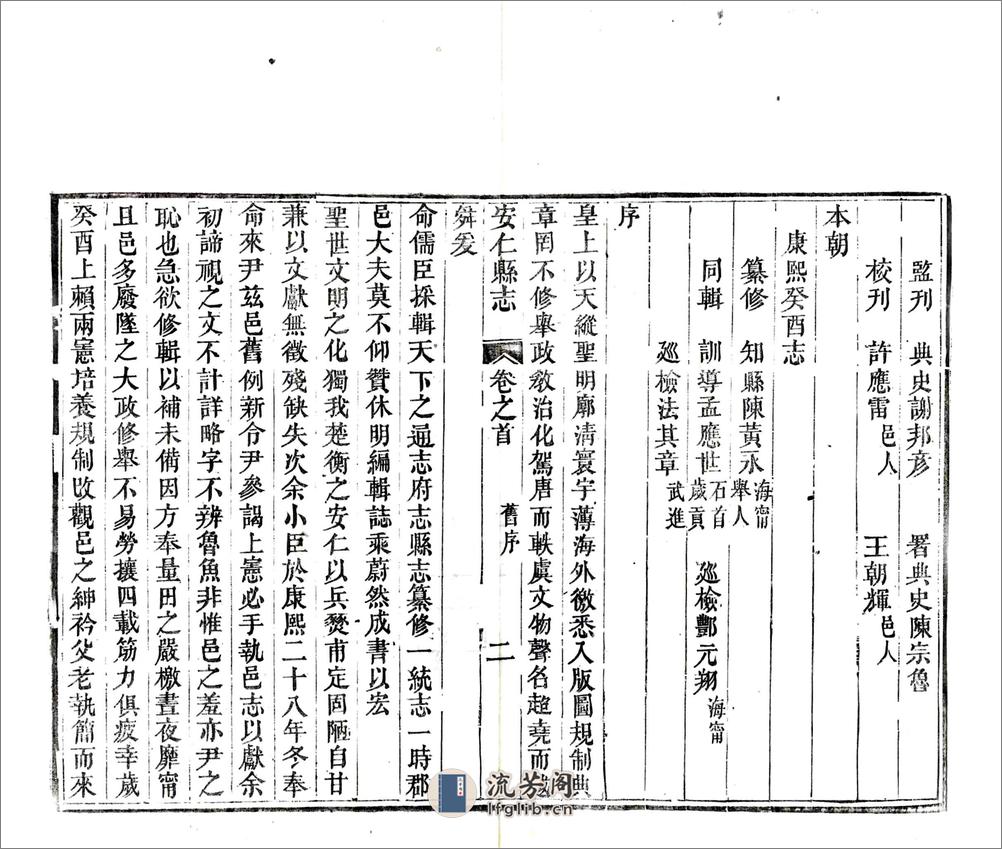 監刊 典史謝邦彥 署典史陳宗魯
校刊 許應雷邑人 王朝輝邑人
本朝
康熙癸酉志
纂修 知縣陳黃永海甯舉人
同輯 訓導孟應世石首歲貢 廵檢酆元翔海甯
廵檢法其章武進
序
皇上以天縱聖明廓淸寰宇薄海外徼悉入版圖規制典
章罔不修舉政敎治化駕唐而軼虞文物聲名超堯而
安仁縣志 卷之首 舊序 二
舜爰
命儒臣採輯天下之通志府志縣志纂修一統志一時郡
邑大夫莫不仰贊休明編輯誌乘蔚然成書以宏
聖世文明之化獨我楚衡之安仁以兵燹甫定固陋自甘
兼以文獻無徵殘缺失次余小臣於康熙二十八年冬奉
命來尹茲邑舊例新令尹參謁上憲必手執邑志以獻余
初諦視之文不計詳略字不辨魯魚非惟邑之羞亦尹之
恥也急欲修輯以補未備因方奉量田之嚴檄晝夜靡甯
且邑多廢墜之大政修舉不易勞攘四載筋力俱疲幸歲
癸酉上賴兩憲培養規制改觀邑之紳衿父老執簡而來
流芳阁
lfglib.cn